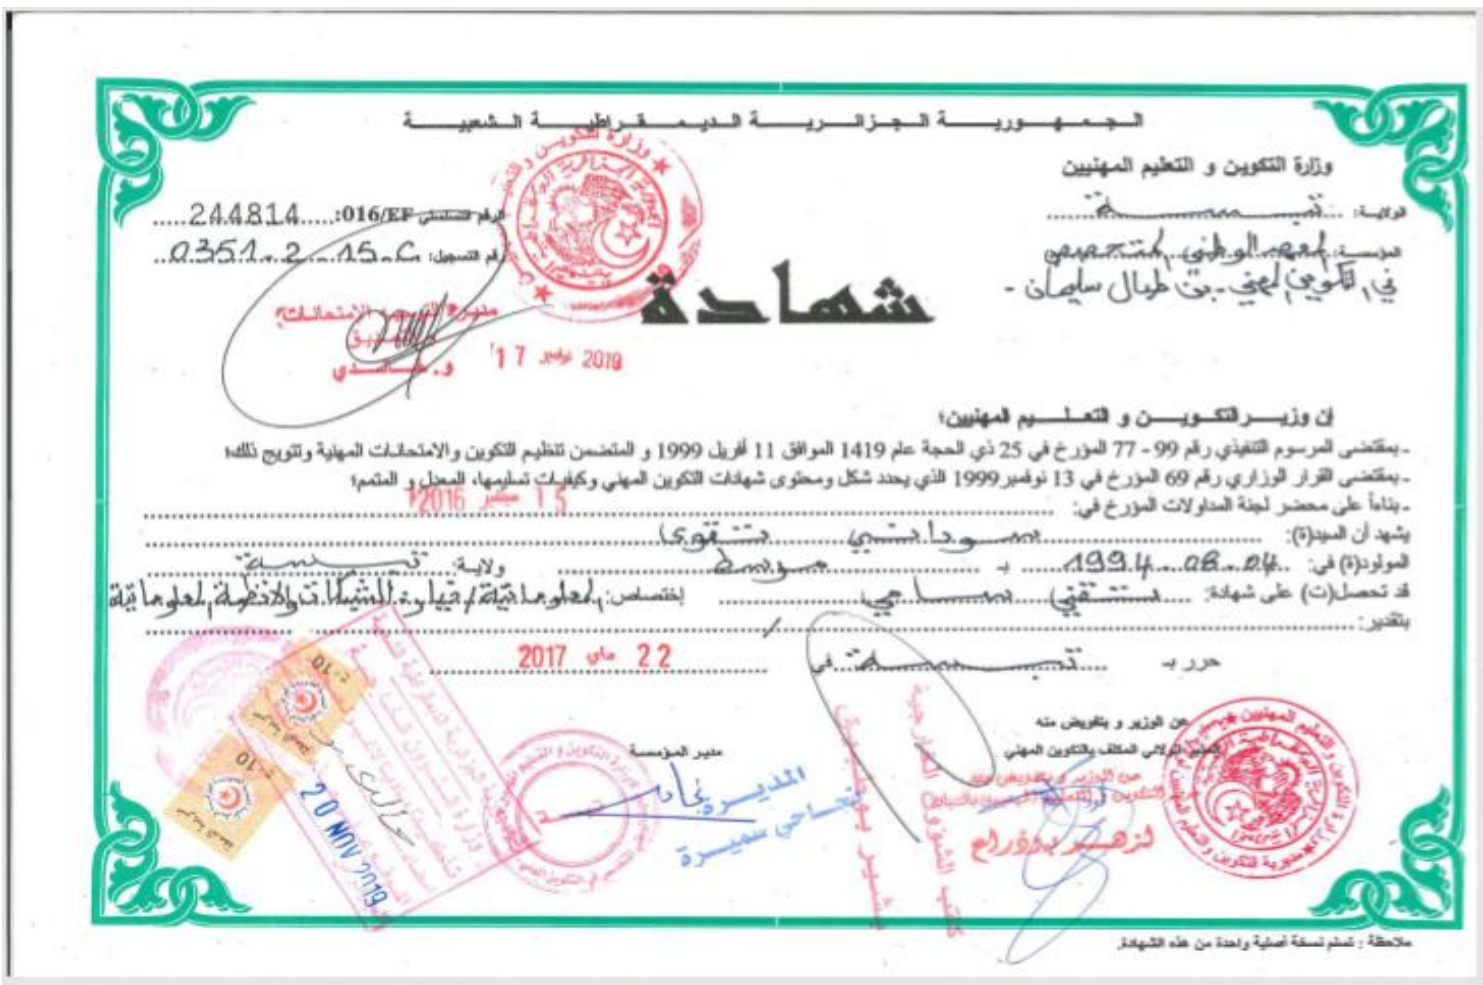 الجمهورية الجزائرية الديمقراطية الشعبية
وزارة التكوين و التعليم المهنيين
الولاية: تبسة
المؤسسة: المعهد الوطني المتخصص
في التكوين المهني - بن طبال سليمان -
الرقم التسلسلي 016/EF: 244814
رقم التسجيل: 0351.2.15.C
شهادة
مديرة التوجيه الامتحانات
و التصديق
و. خالدي
17 نوفمبر 2019
إن وزير التكوين و التعليم المهنيين؛
- بمقتضى المرسوم التنفيذي رقم 99 - 77 المؤرخ في 25 ذي الحجة عام 1419 الموافق 11 أفريل 1999 و المتضمن تنظيم التكوين والامتحانات المهنية وتتويج ذلك؛
- بمقتضى القرار الوزاري رقم 69 المؤرخ في 13 نوفمبر 1999 الذي يحدد شكل ومحتوى شهادات التكوين المهني وكيفيات تسليمها، المعدل و المتمم؛
- بناءاً على محضر لجنة المداولات المؤرخ في: 15 2016
يشهد أن السيد(ة): تقوى
المولود(ة) في: 1994.08.04 بـ ولاية: تبسة
قد تحصل(ت) على شهادة: تقني سامي إختصاص: المعلوماتية / الشبكات والأنظمة المعلوماتية
بتقدير: /
حرر بـ تبسة في 22 ماي 2017
عن الوزير و بتفويض منه
المدير الولائي المكلف بالتكوين المهني
مدير المؤسسة
المديرة
سميرة
20 NOV 2019
10
10
ملاحظة : تسلم نسخة أصلية واحدة من هذه الشهادة.